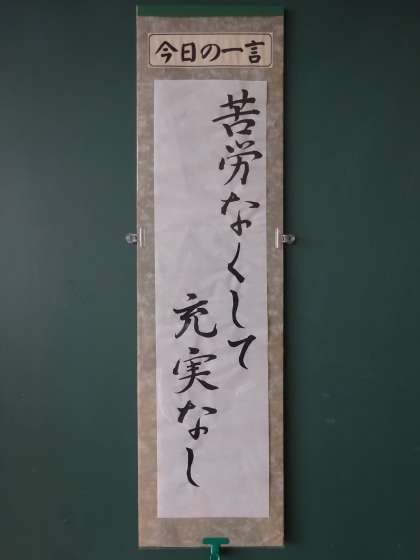 今日の一言
苦労なくして
充実なし